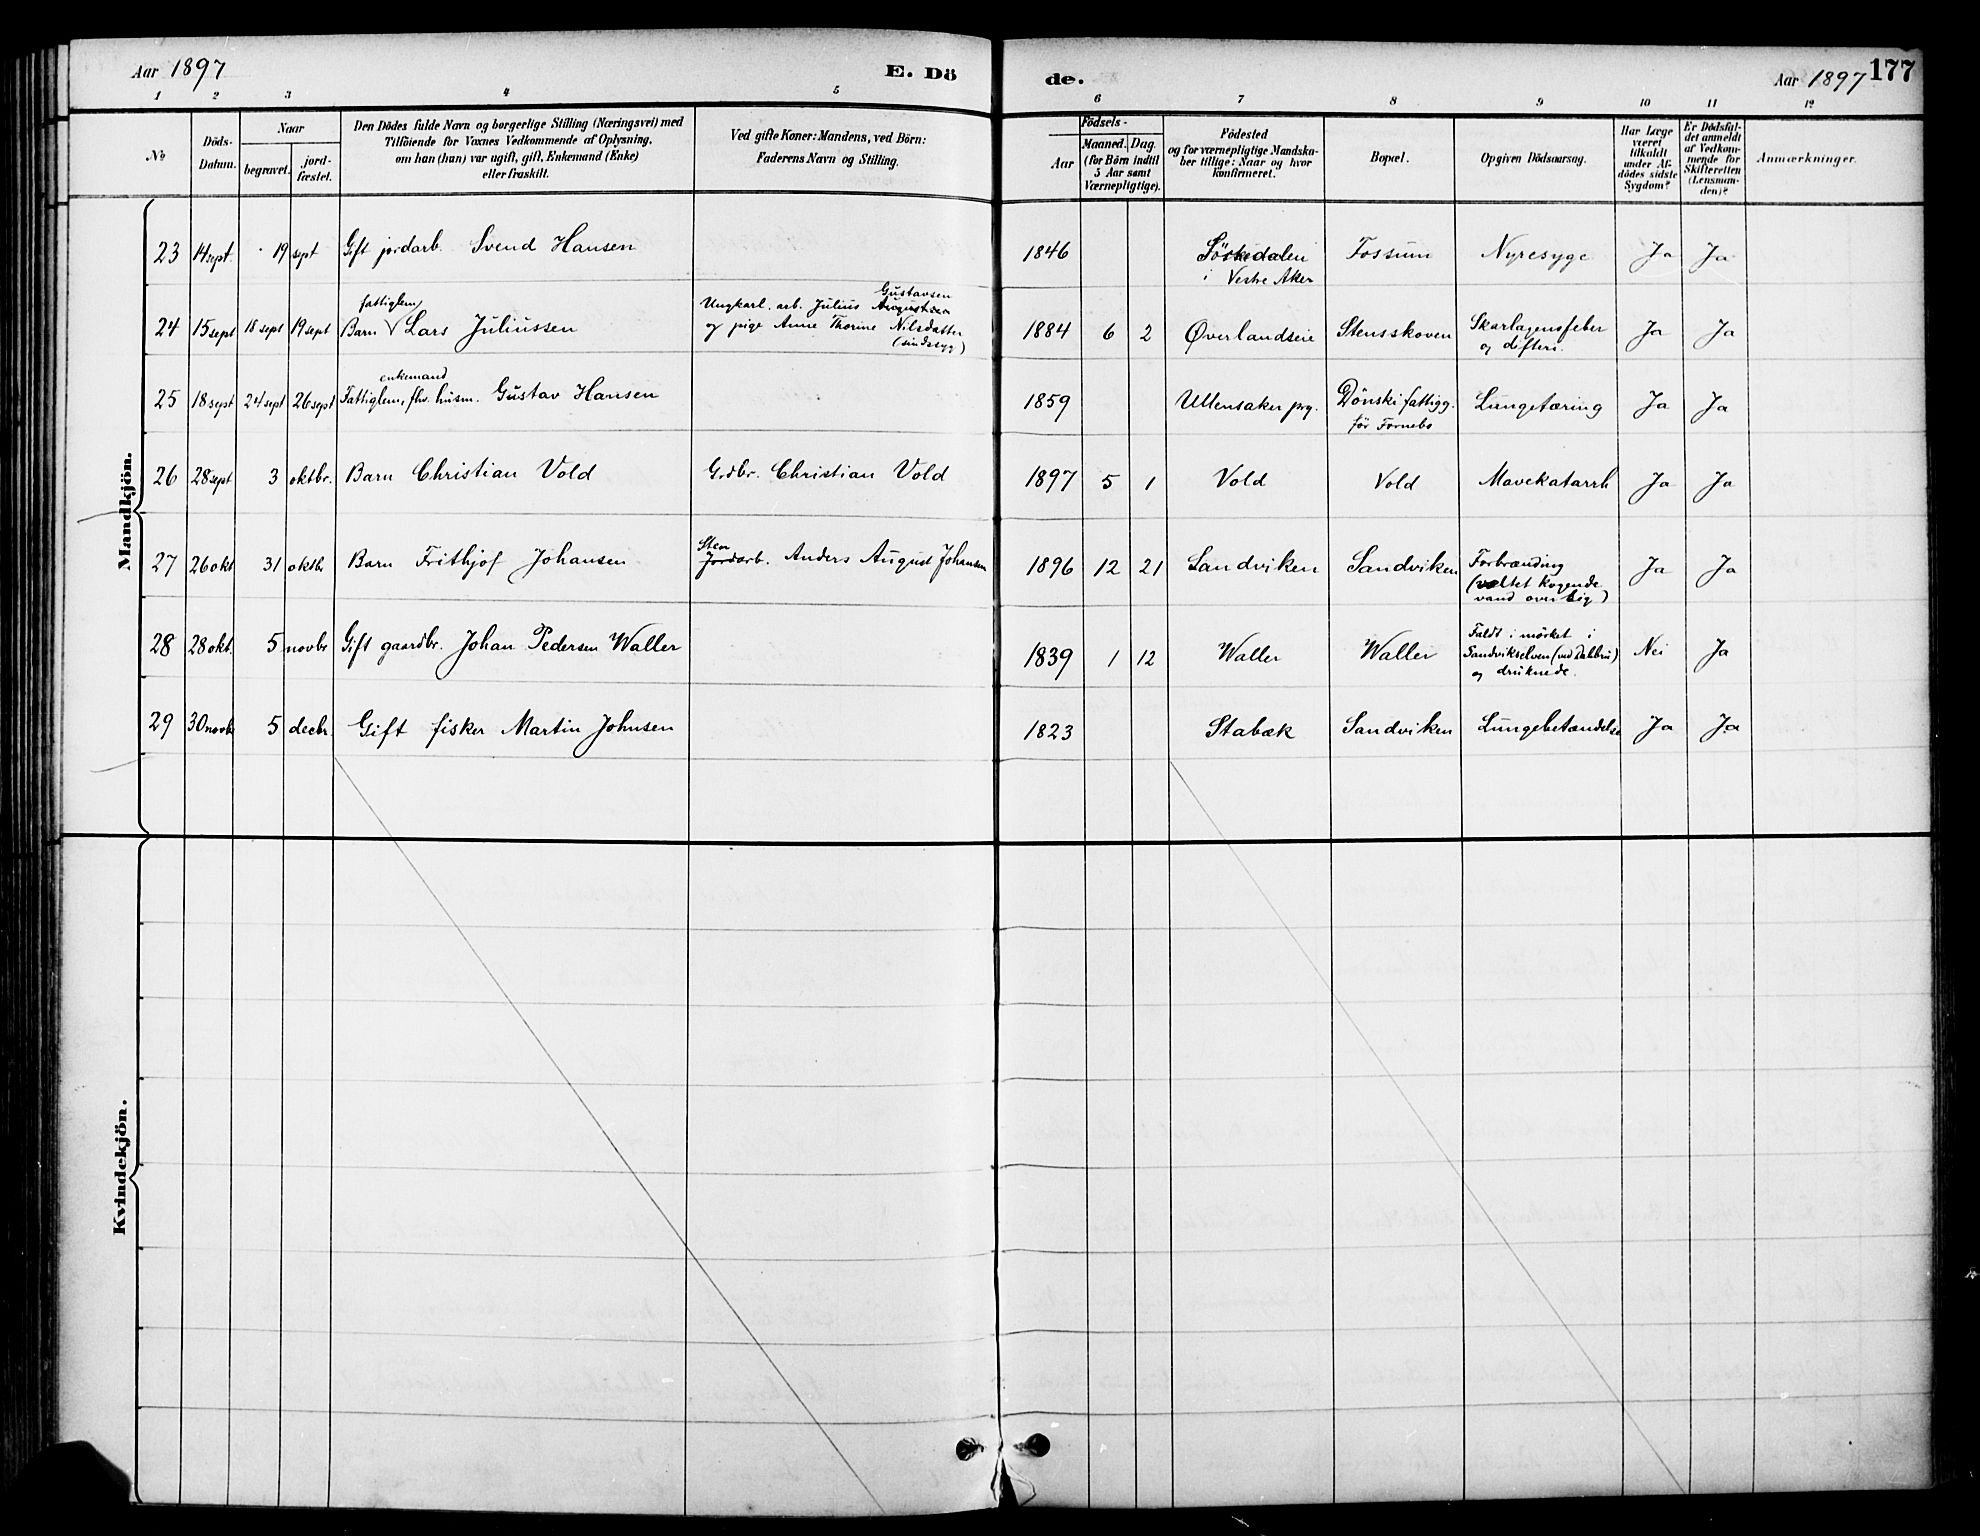 Aar 1897 E. Dö de. Aar 1897 177
1 2 3 4 5 6 7 8 9 10 11 12
No
Döds-
Datum.
Naar
begravet.
jord-
fæstet.
Den Dödes fulde Navn og borgerlige Stilling (Næringsvei) med
Tilföiende for Voxnes Vedkommende af Oplysning,
om han (hun) var ugift, gift, Enkemand (Enke)
eller fraskilt.
Ved gifte Koner: Mandens, ved Börn:
Faderens Navn og Stilling.
Födsels-
Aar
Maaned.
Dag.
(for Börn indtil
5 Aar samt
Værnepligtige).
Födested
og for værnepligtige Mandska-
ber tillige: Naar og hvor
konfirmeret.
Bopæl.
Opgiven Dödsaarsag.
Har Læge
været
tilkaldt
under Af-
dödes sidste
Sygdom?
Er Dödsfal-
det anmeldt
af Vedkom-
mende for
Skifteretten
(Lensman-
den)?
Anmærkninger.
Mandkjön.
23 14 sept. 19 sept Gift jordarb. Svend Hansen 1846 Sörkedalen Fossum Nyresyge Ja Ja
i Vestre Aker
fattiglem Gustavsen
24 15 sept 18 sept 19 sept Barn Lars Juliussen Ungkarl. arb. Julius
og pige Anne Thorine Nilsdatter
(sindssyg)
1884 6 2 Øverlandseie Stensskoven Skarlagensfeber Ja Ja
og difteri.
enkemand
25 18 sept 24 sept 26 sept Fattiglem, fhv. husm. Gustav Hansen 1859 Ullensaker prg. Dönski fattigg. Lungetæring Ja Ja
för Fornebo
26 28 sept 3 oktbr. Barn Christian Vold Grdbr. Christian Vold 1897 5 1 Vold Vold Mavekatarrh Ja Ja
Sten
27 26 okt 31 oktbr Barn Frithjof Johansen Jordarb. Anders August Johansen 1896 12 21 Sandviken Sandviken Forbrænding Ja Ja
(væltet kogende
vand over sig)
28 28 okt. 5 novbr Gift gaardbr. Johan Pedersen Waller 1839 1 12 Waller Waller Faldt i mörket i Nei Ja
Sandvikselven (ved Dahlbru)
og druknede.
29 30 novbr 5 decbr. Gift fisker Martin Johnsen 1823 Stabæk Sandviken Lungebetændelse Ja Ja
Kvindekjön.